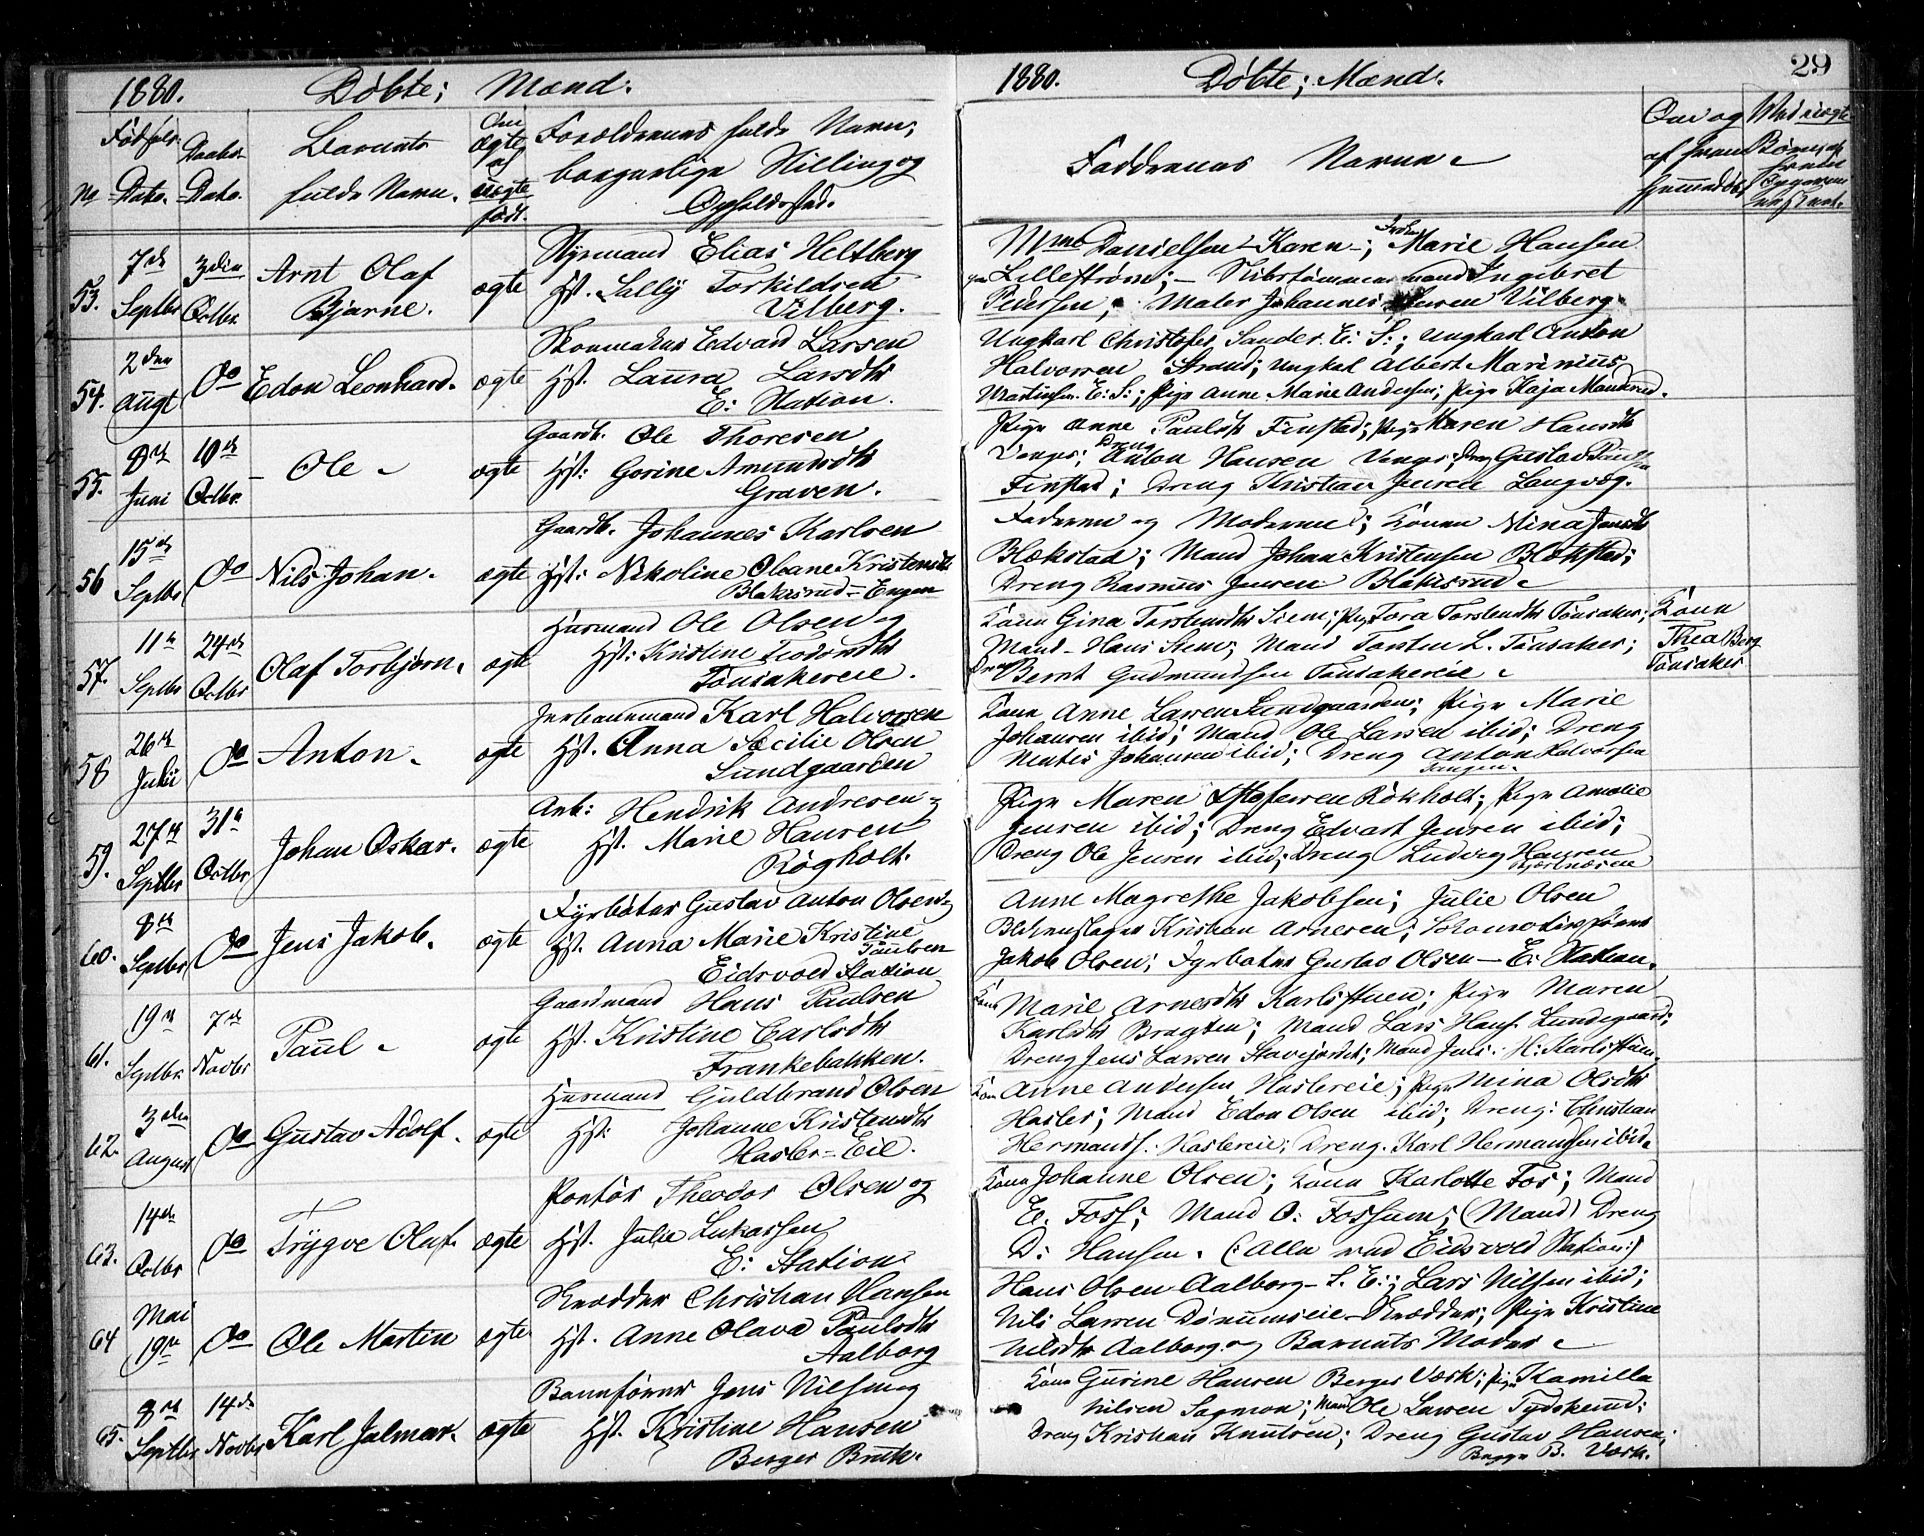 1880. Døbte; Mænd:
No
Fødsels-
Dato.
Daabs-
Dato.
Barnets
fulde Navn.
Om
ægte
el
uægte
født.
Forældrenes fulde Navn,
borgerlige Stilling og
Opholdssted.
53.
7de
Septbr
3die
Octbr.
Arnt Olaf
Bjarne.
ægte
Styrmand Elias Heltberg
Hst. Sally Torkildsen
Vilberg.
54.
2den
Augt
Do
Edon Leonhard.
ægte
Skoemaker Edvard Larsen
Hst. Laura Larsdtr
E: Station.
55.
8de
Juni
10de
Octbr.
Ole
ægte
Gaardb. Ole Thoresen
Hst: Gorine Amundsdtr
Graven.
56
15de
Septbr
Do
Nils Johan.
ægte
Gaardb. Johannes Karlsen
Hst: Nikoline Oleane Kristensdtr
Blakisrud-Engen
57.
11te
Septbr
24de
Octbr
Olaf Torbjørn.
ægte
Husmand Ole Olsen og
Hst: Kristine
Tønsakereie.
58
26de
Juli
Do
Anton.
ægte
Jernbanemand Karl Halvorsen
Hst. Anna Sæcilie Olsen
Sundgaarden
59.
27de
Septbr
31te
Octbr
Johan Oskar.
ægte
Arb: Hendrik Andresen og
Hst. Marie Hansen
Røgholt.
60.
8de
Septbr
Do
Jens Jakob.
ægte
Fyrbøter Gustav Anton Olsen og
Hst. Anna Marie Kristine
Paulsen
Eidsvold Station
61.
19de
Septbr.
7de
Novbr
Paul
ægte
Gaardmand Hans Paulsen
Hst. Kristine Carlsdtr
Frankebakken.
62.
3die
August
Do
Gustav Adolf.
ægte
Husmand Guldbrand Olsen
Hst: Johanne Kristensdtr
Hasler-Eie.
63.
14de
Octbr
Do
Trygve Olaf.
ægte
Portør Theodor Olsen og
Hst. Julie Lukassen
E: Station
64
Mai
19de
Do
Ole Martin
ægte
Skrædder Christian Hansen
Hst. Anne Olava Paulsdtr
Aalborg
65.
8de
Septbr
14de
Novbr
Karl Jalmar.
ægte
Banefører Jens Nilsen og
Hst. Kristine Hansen
Berger Bruk.
1880. Døbte; Mænd. 29
Faddrenes Navne
Om og
af hvem
hjemmedøbt
Ved uægte
Børn
Mme Danielsen - Karen -; Frøken Marie Hansen
Lillestrøm; - Skibstømmermand Ingibret
Pedersen; Maler Johannes Jensen Vilberg
Ungkarl Christofer Sander E: S:; Ungkarl Anton
Halvorsen Strand; Ungkal Albert Marinius
Martinsen E: S:; Pige Anne Marie Andersen; Pige Kaja Mandrud.
Pige Anne Paulsdt Finstad; Pige Karen Hansdtr
Venger; Dreng Anton Hansen Venger; Dreng Gustav Paulsen
Finstad; Dreng Kristian Jensen Langvæg.
Faderen og Moderen; Konen Mina Jensdtr
Blækstad; Mand Johan Kristensen Blækstad;
Dreng Rasmus Jensen Blakisrud
Kone Gina Torstensdtr Steen; Pige Tora Torstensdtr Tønsaker;
Mand Hans Steen; Mand Torsten L. Tønsaker;
Dreng Bernt Gudmundsen Tønsakereie
Kone
Thea Berg
Tønsaker
Kone Anne Larsen Sundgaarden; Pige Marie
Johansen ibid; Mand Ole Larsen ibid; Dreng
Matis Johansen ibid; Dreng Anton Halvorsen
Pige Maren Kristofersen Røkholt; Pige Amalie
Jensen ibid; Dreng Edvart Jensen ibid;
Dreng Ole Jensen ibid; Dreng Ludvig Hansen
Anne Magrethe Jakobsen; Julie Olsen
Blikkenslager Kristian Arnesen; Lokomotivfører
Jakob Olsen; Fyrbøter Gustav Olsen - E: Station.
Kone Marie Arnesdtr Karlsstuen; Pige Maren
Karlsdtr Bragten; Mand Lars Hans. Lundegaard;
Dreng Jens Larsen Stavejordet; Mand Juli: H: Karlsstuen.
Kone Anne Andersen Haslereie; Pige Mina Olsdtr
Hasler; Mand Edon Olsen ibid; Dreng: Christian
Hermands. Haslereie; Dreng Karl Hermandsen ibid.
Kone Johanne Olsen; Kone Karlotte Fos; Mand
E. Foss; Mand O: Fossum; (Mand) Dreng
D: Hansen. (:Alle ved Eidsvold Station:)
Hans Olsen Aalborg - S. E:; Lars Nilsen ibid;
Nils Larsen Dønnumseie - Skrædder; Pige Kristine
Nilsdtr Aalborg og Barnets Moder
Kone Gurine Hansen Berger Værk; Pige Kamilla
Nilsen Sagmoen; Mand Ole Larsen Tydskerud;
Dreng Kristian Knutsen; Dreng Gustav Hansen;
Begge B. Værk.